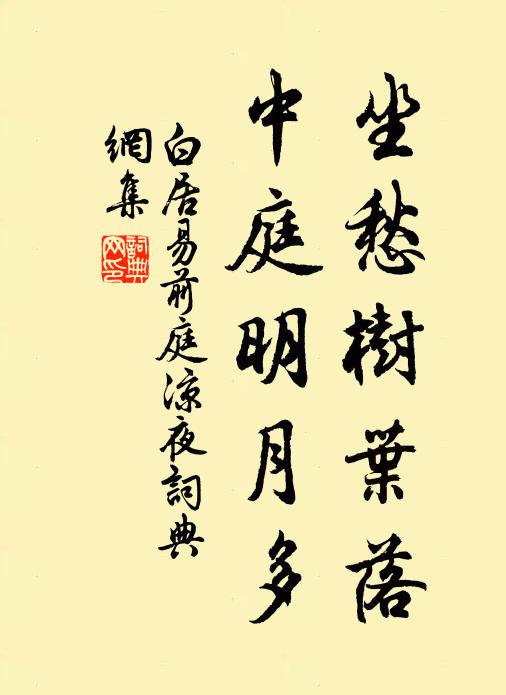 坐愁樹葉落
中庭明月多
白居易前庭涼夜詞典
網集
詞典
网印